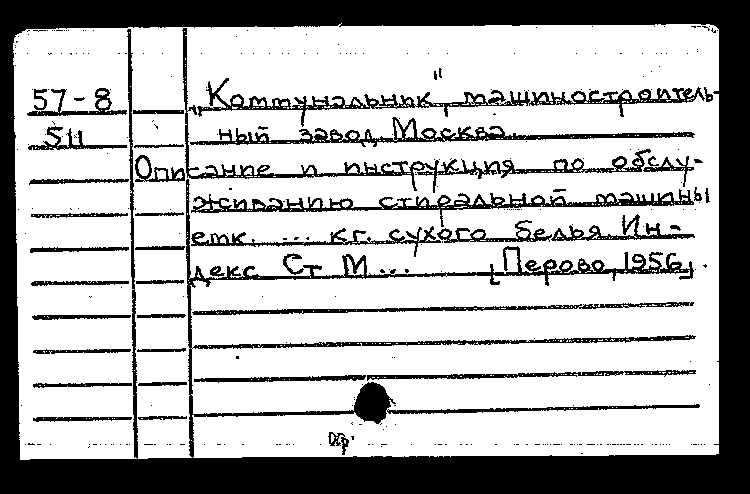 57-8 „Коммунальник", машиностроитель-
511 ный завод, Москва.
Описание и инструкция по обслу-
живанию стиральной машины
емк. ... кг. сухого белья. Ин-
декс Ст М... [Перово, 1956].